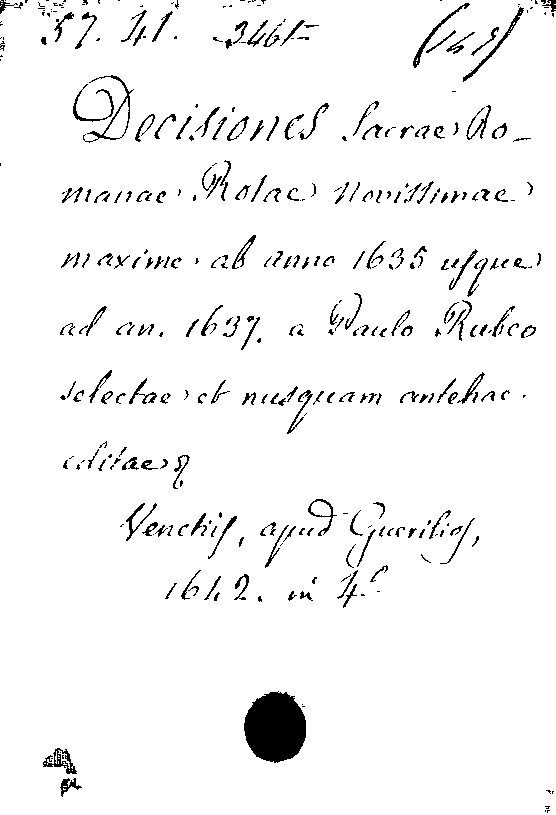 57. 41.
Decisiones Sacrae Ro-
manae Rotae novissimae
maxime ab anno 1635 usque
ad an. 1637. a Paulo Rubeo
selectae et nusquam antehac
editae
Venetiis, apud Guerilios,
1642. in 4º